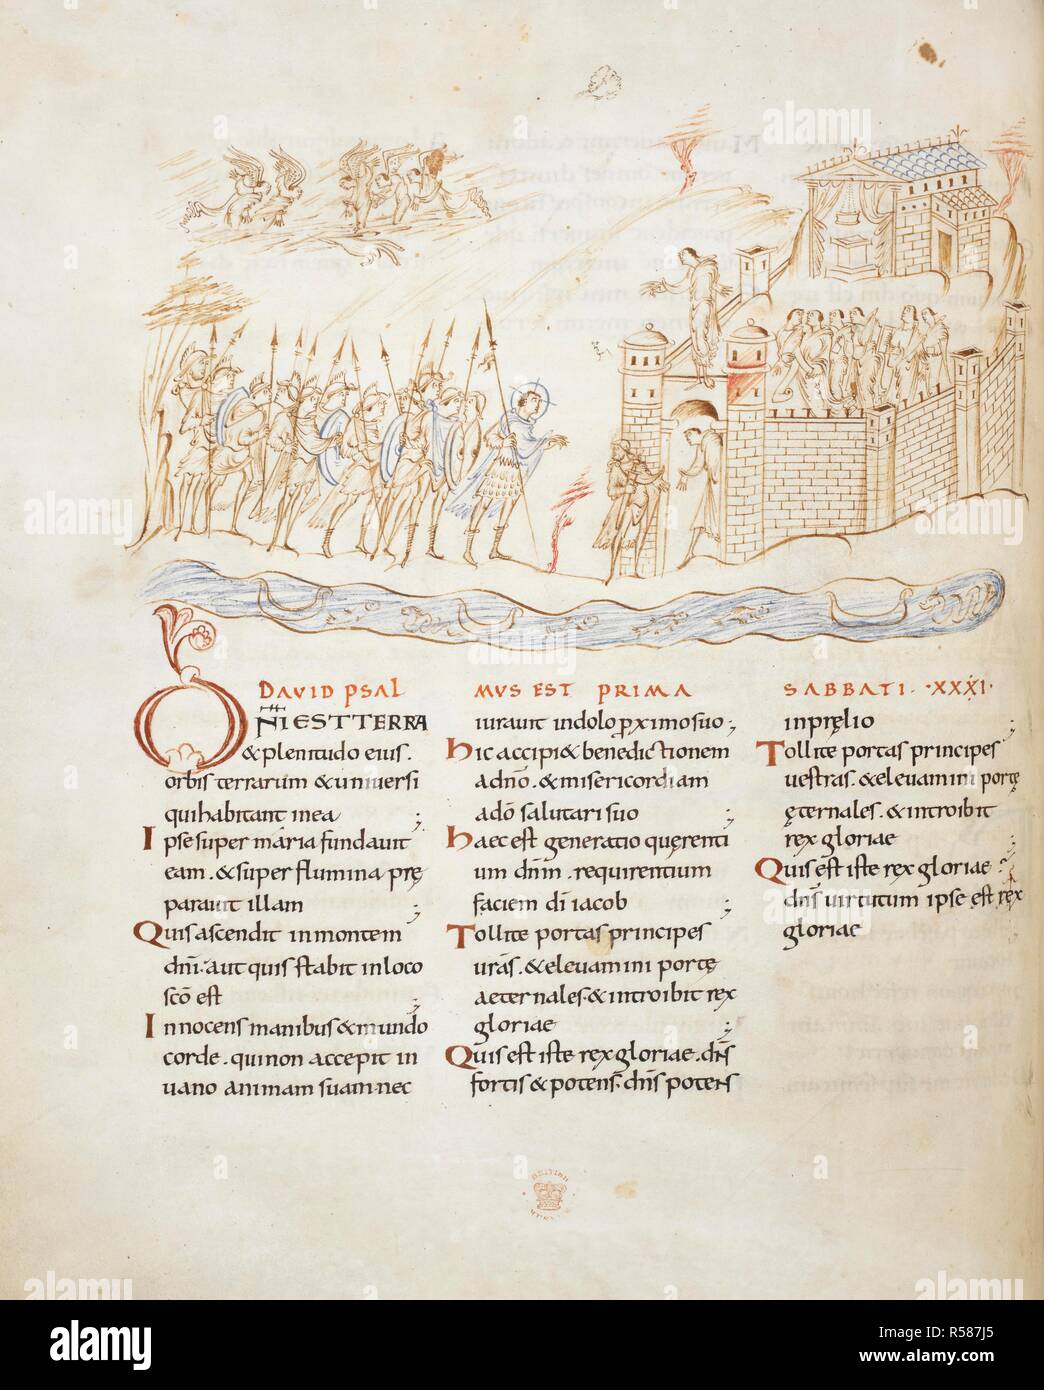 DAVID PSALMUS EST PRIMA SABBATI · XXXI ·
DÑI EST TERRA
& plenitudo eius .
orbis terrarum & universi
qui habitant in ea ;
Ipse super maria fundavit
eam . & super flumina prę
paravit illam ;
Quis ascendit in montem
dñi . aut quis stabit in loco
sc̄o est ;
Innocens manibus & mundo
corde . qui non accepit in
vano animam suam . nec
iuravit in dolo p̱ximo suo ;
Hic accipi& benedictionem
a dño . & misericordiam
a dō salutari suo ;
Haec est generatio quęrenti
um dñm . requirentium
faciem dī iacob ;
Tollite portas principes
vr̄as . & elevamini portę
aeternales . & introibit rex
gloriae ;
Quis est iste rex gloriae . dn̄s
fortis & potens . dn̄s potens
in pręlio ;
Tollite portas principes
vestras . & elevamini portę
ęternales . & introibit
rex gloriae ;
Quis est iste rex gloriae ?
dn̄s virtutum ipse est rex
gloriae
BRITISH MUSEUM
alamy
Image ID: R587J5
www.alamy.com